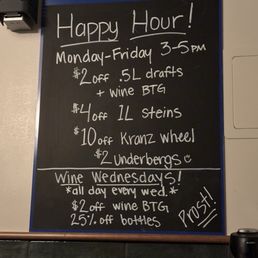 Happy Hour!
Monday-Friday 3-5pm
$2 off .5L drafts
+ wine BTG
$4 off 1L steins
$10 off Kranz wheel
$2 underbergs
Wine Wednesdays!
*all day every wed.*
$2 off wine BTG
25% off bottles
Prost!